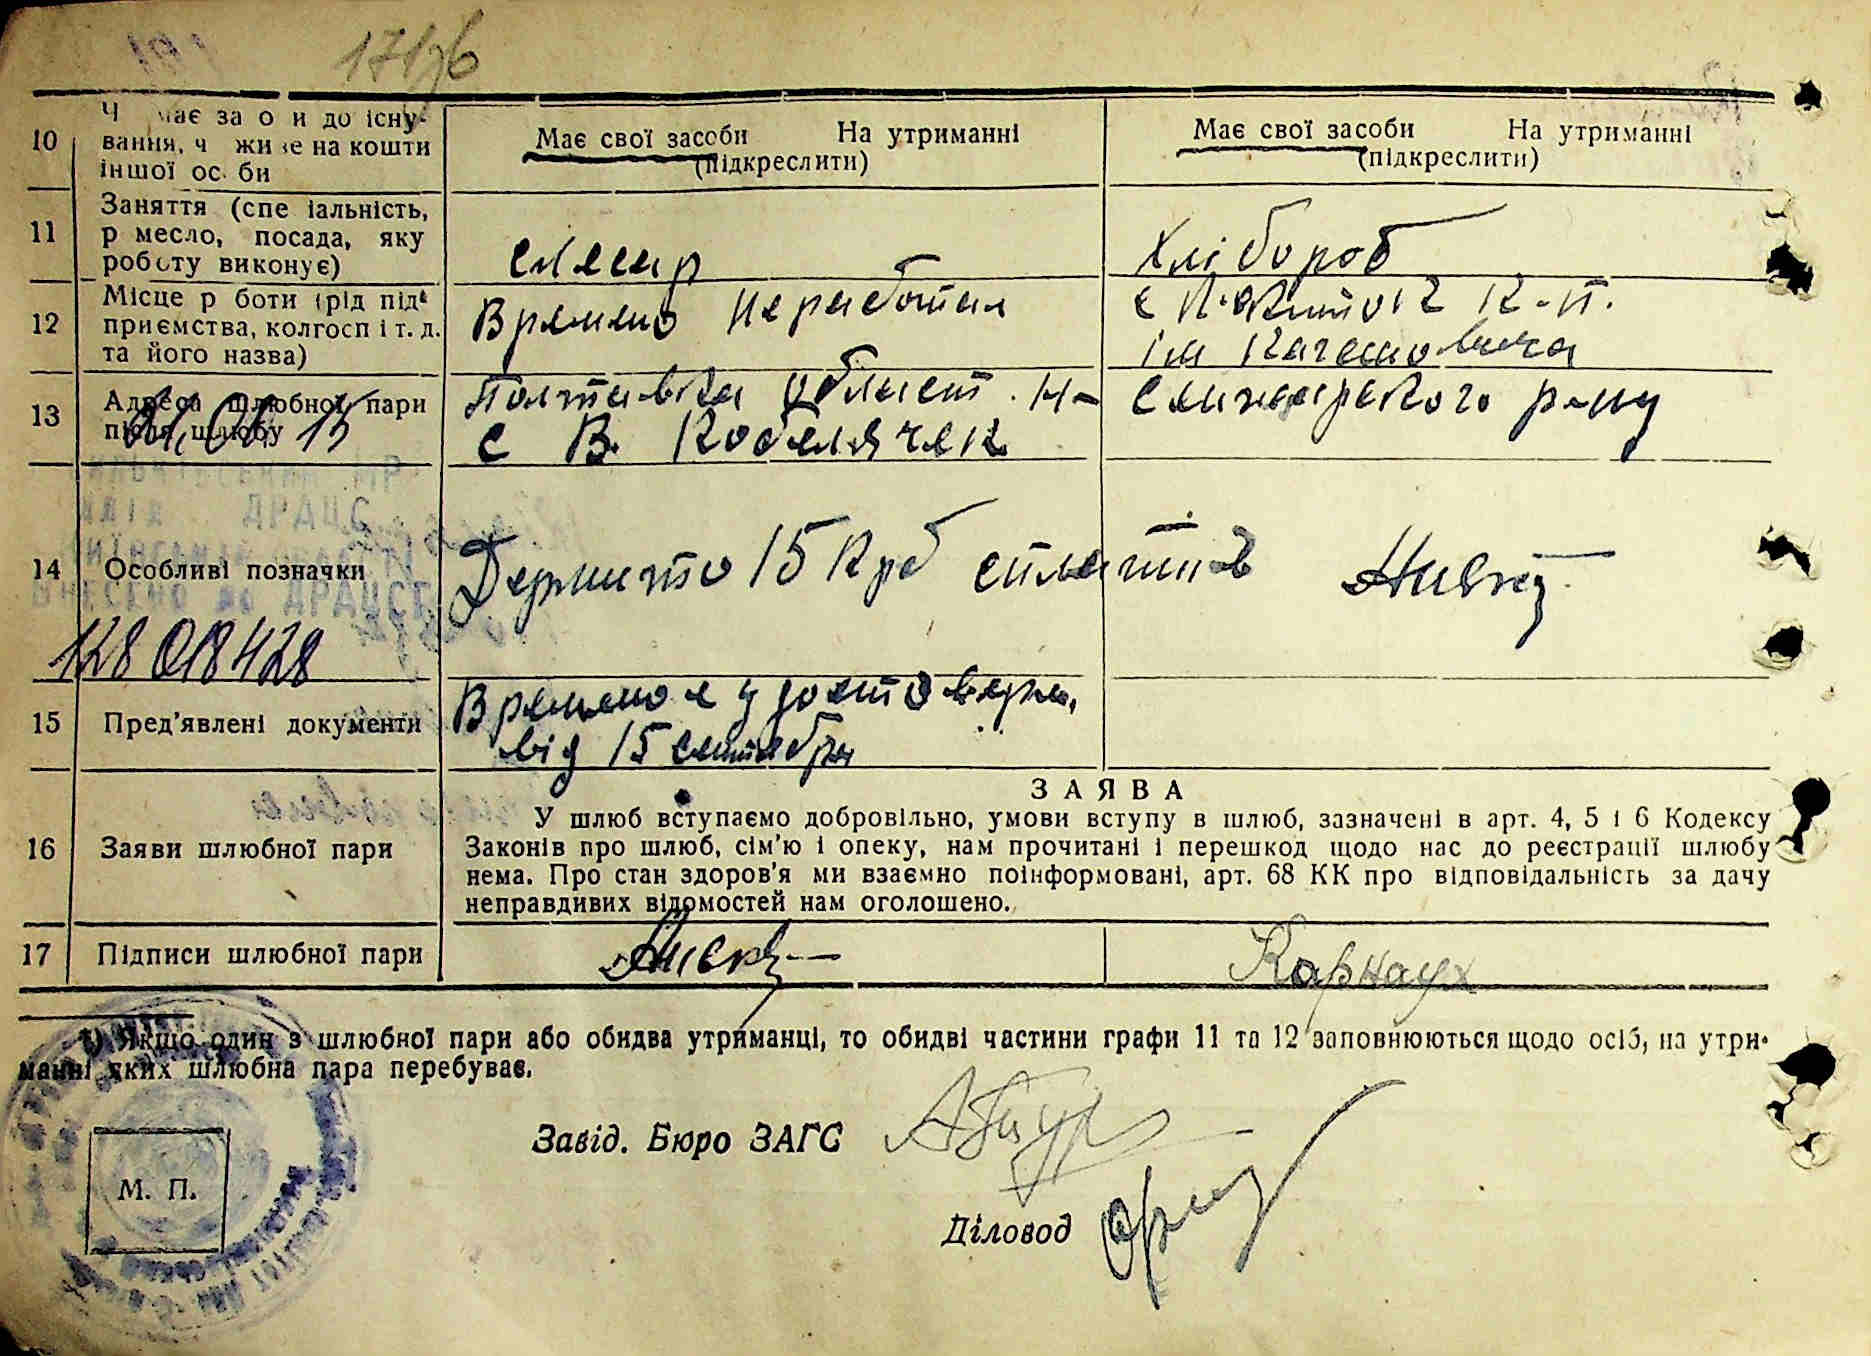 10 Ч має за о и до існу-
вання, ч жи е на кошти
іншої ос би
Має свої засоби На утриманні
(підкреслити)
Має свої засоби На утриманні
(підкреслити)
11 Заняття (спе іальність,
р месло, посада, яку
роботу виконує)
слесар
Хлібороб
12 Місце р боти (рід під
приємства, колгосп і т. д.
та його назва)
Времено Неработал
с К-п.
ім Кагановича
13 Адреса шлюбної пари
після шлюбу
01.06.15
Полтавска област. Н-Санжарского р-ну
с В. Кобелячек
ДРАЦС
14 Особливі позначки
ВНЕСЕНО до ДРАЦСГ
128 018428
15 Крб сплатив
15 Пред'явлені документи
Временое удостоверен.
від 15 сентября
16 Заяви шлюбної пари
ЗАЯВА
У шлюб вступаємо добровільно, умови вступу в шлюб, зазначені в арт. 4, 5 і 6 Кодексу
Законів про шлюб, сім'ю і опеку, нам прочитані і перешкод щодо нас до реєстрації шлюбу
нема. Про стан здоров'я ми взаємно поінформовані, арт. 68 КК про відповідальність за дачу
неправдивих відомостей нам оголошено.
17 Підписи шлюбної пари
Карнаух
1) Якщо один з шлюбної пари або обидва утриманці, то обидві частини графи 11 та 12 заповнюються щодо осіб, на утри-
манні яких шлюбна пара перебуває.
Завід. Бюро ЗАГС
М. П.
Діловод